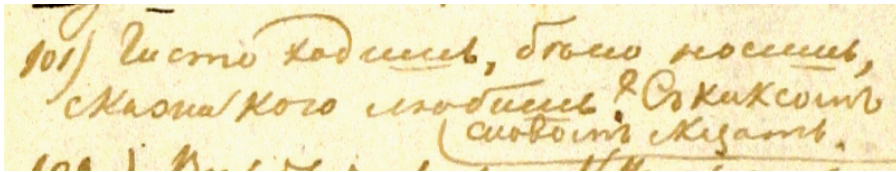 101) Чисто ходишь, бѣло носишь,
скажи кого любишь? Съ какомъ
словомъ